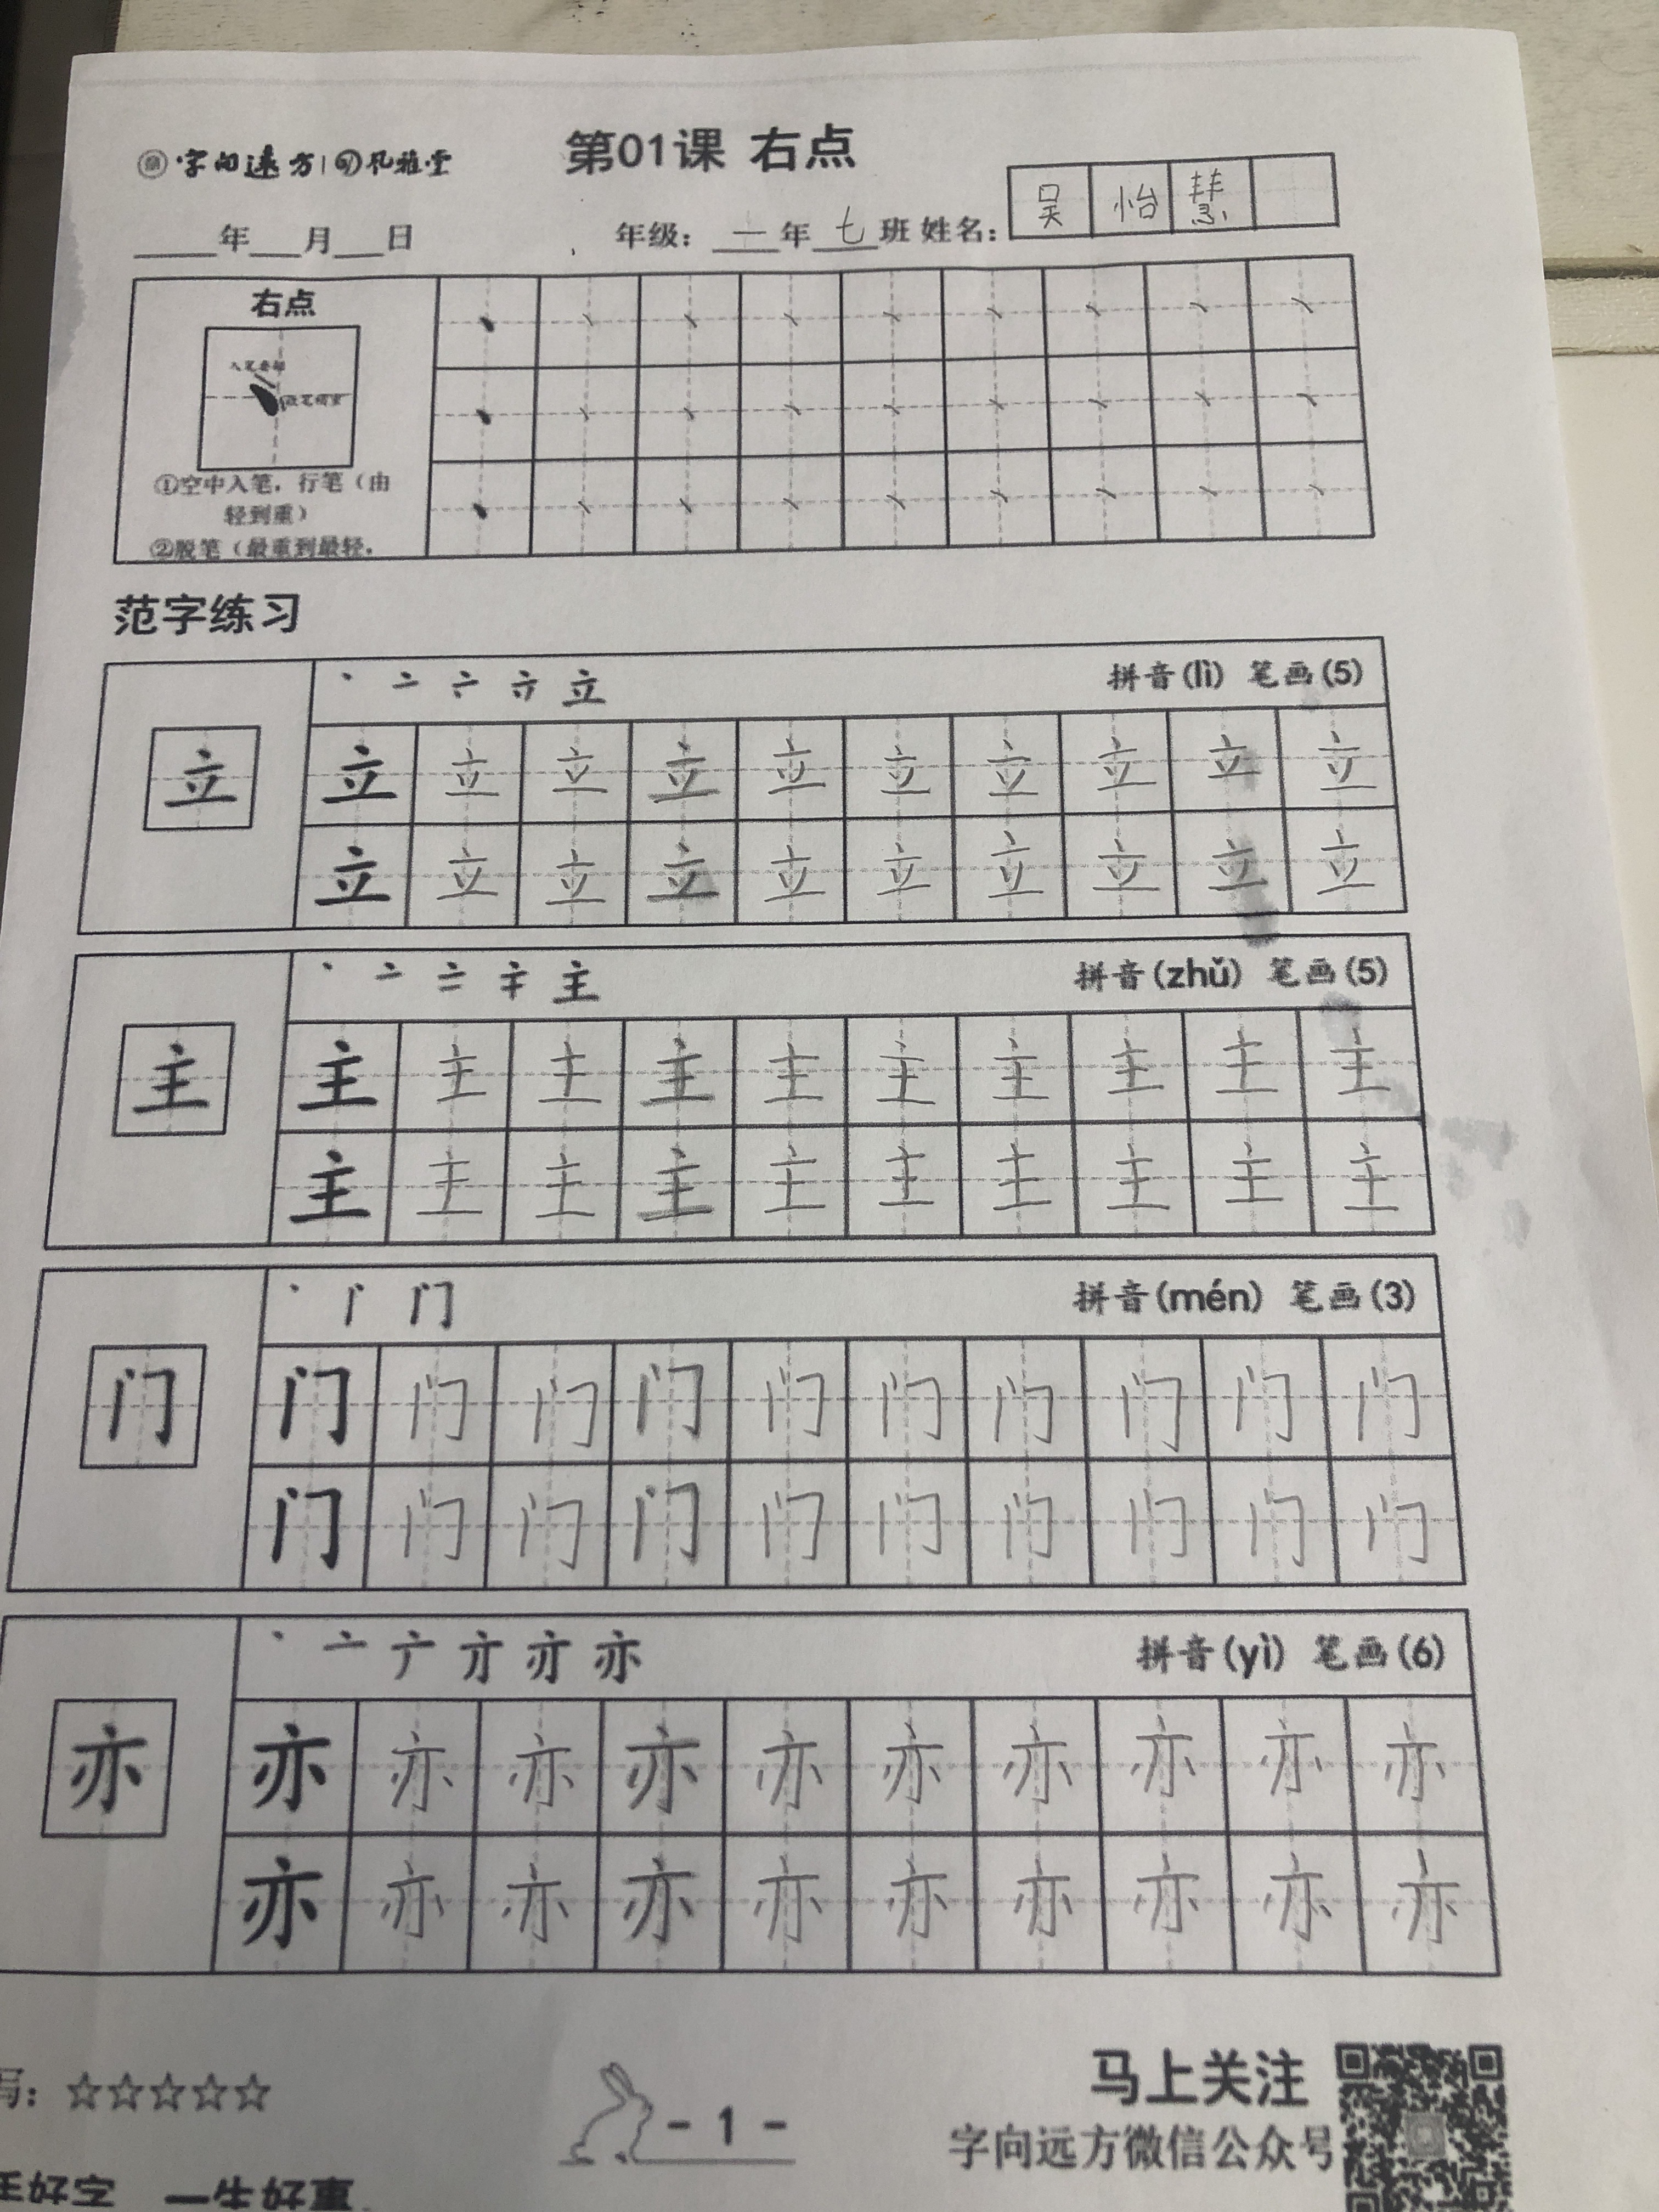 字向远方 | 风雅堂
第01课 右点
____年___月___日
年级：一年七班 姓名：吴怡慧
右点
①空中入笔，行笔（由
轻到重）
②脱笔（最重到最轻，
范字练习
立 拼音(lì) 笔画(5)
立 立 立 立 立 立 立 立 立 立 立
立 立 立 立 立 立 立 立 立 立
主 拼音(zhǔ) 笔画(5)
主 主 主 主 主 主 主 主 主 主 主
主 主 主 主 主 主 主 主 主 主
门 拼音(mén) 笔画(3)
门 门 门 门 门 门 门 门 门 门 门
门 门 门 门 门 门 门 门 门 门
亦 拼音(yì) 笔画(6)
亦 亦 亦 亦 亦 亦 亦 亦 亦 亦 亦
亦 亦 亦 亦 亦 亦 亦 亦 亦 亦
写：☆☆☆☆☆
- 1 -
马上关注
字向远方微信公众号
好字 一生好事